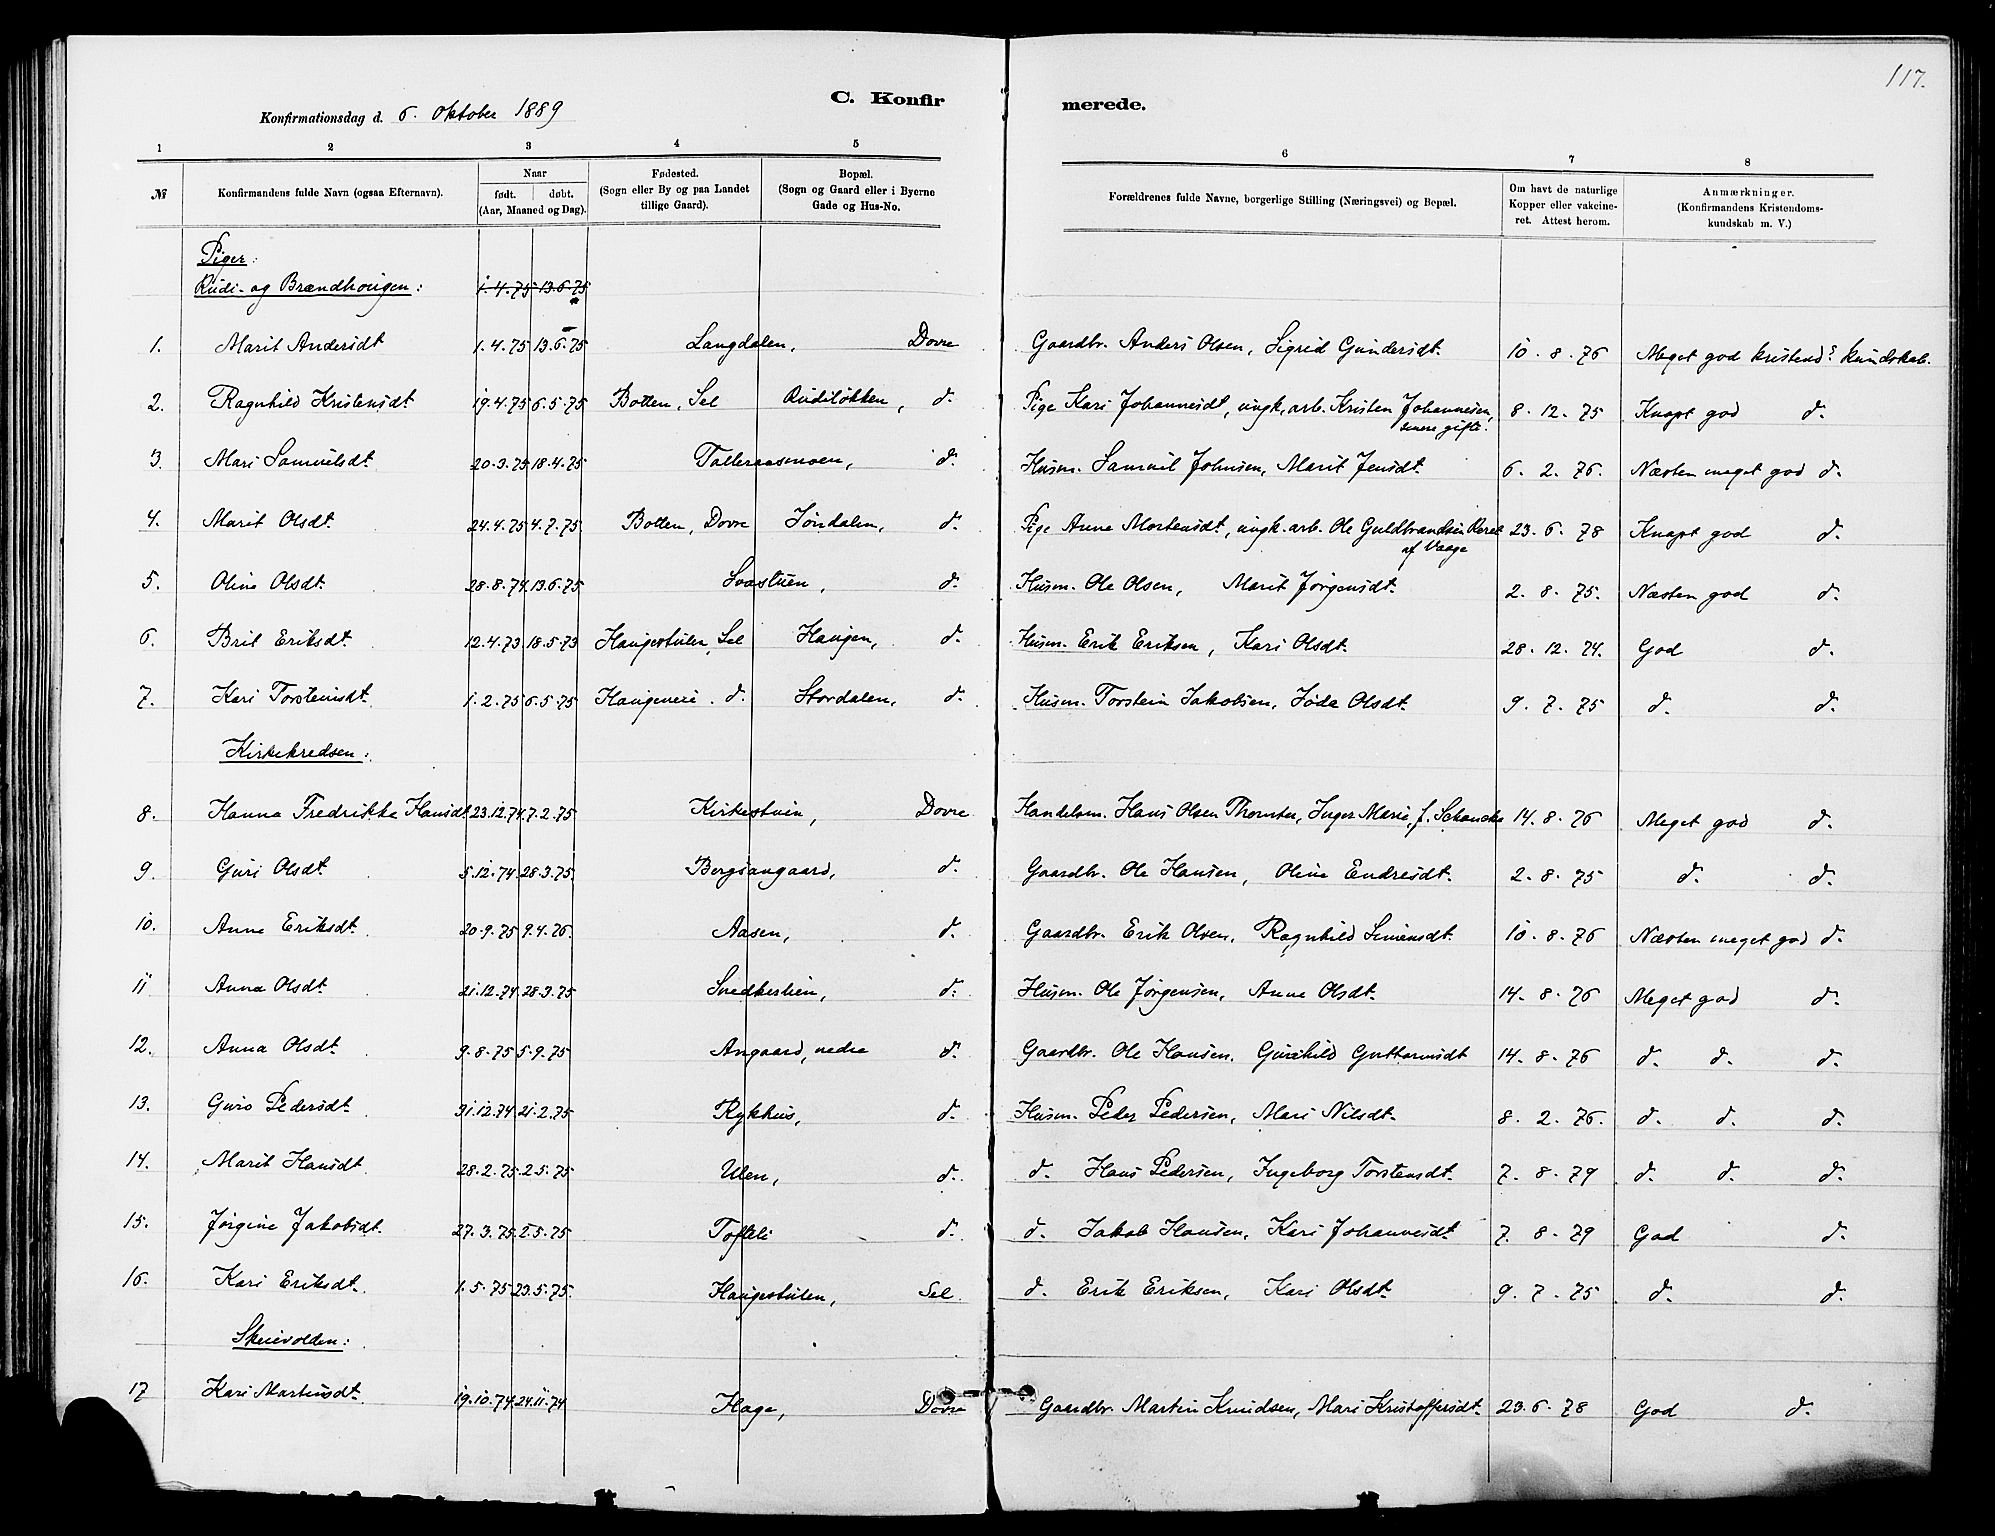 117.
C. Konfirmerede.
Konfirmationsdag d. 6. Oktober 1889
1 2 3 4 5 6 7 8
№ Konfirmandens fulde Navn (ogsaa Efternavn). Naar født. døbt. (Aar, Maaned og Dag). Fødested. (Sogn eller By og paa Landet tillige Gaard). Bopæl. (Sogn og Gaard eller i Byerne Gade og Hus-No. Forældrenes fulde Navne, borgerlige Stilling (Næringsvei) og Bopæl. Om havt de naturlige Kopper eller vakcineret. Attest herom. Anmærkninger. (Konfirmandens Kristendomskundskab m. V.)
Piger:
Rudi- og Brændhougen: 1.4.75 13.6.75
1. Marit Andersdt 1.4.75 13.6.75 Langdalen, Dovre Gaardbr. Anders Olsen, Sigrid Gundersdt. 10.8.76 Meget god kristend: kundskab.
2. Ragnhild Kristensdt 19.4.75 6.5.75 Botten, Sel Rudiløkken, d. Pige Kari Johannesdt, ungk. arb. Kristen Johannesen, senere gifte. 8.12.75 Knapt god d.
3. Mari Samuelsdt. 20.3.75 18.4.75 Talleraasmoen, d. Husm. Samuel Johnsen, Marit Jensdt. 6.2.76. Næsten meget god d.
4. Marit Olsdt. 24.4.75 4.7.75. Botten, Dovre Jøndalen, d. Pige Anne Mortensdt, ungk. arb. Ole Guldbrandsen af Vaage 23.6.78 Knapt god d.
5. Oline Olsdt. 28.8.74. 13.6.75 Svastuen, d. Husm. Ole Olsen, Marit Jørgensdt. 2.8.75. Næsten god d.
6. Brit Eriksdt. 12.4.73 18.5.73 Haugestulen, Sel Haugen, d. Husm. Erik Eriksen, Kari Olsdt. 28.12.74. God d.
7. Kari Torsteinsdt. 1.2.75 6.5.75 Haugeneie. d. Stordalen, d. Husm. Torstein Jakobsen, Jøda Olsdt. 9.7.75 d. d.
Kirkekredsen:
8. Hanna Fredrikke Hansdt. 23.12.74. 7.2.75 Kirkestuen, Dovre Handelsm. Hans Olsen, Inger Marie, f. Schancke 14.8.76 Meget god d.
9. Guri Olsdt. 5.12.74. 28.3.75 Bergsangaard, d. Gaardbr. Ole Hansen, Oline Endresdt. 2.8.75 d. d.
10. Anne Eriksdt. 20.9.75 9.4.76. Aasen, d. Gaardbr. Erik Olsen, Ragnhild Simensdt. 10.8.76 Næsten meget god d.
11 Anna Olsdt. 21.12.74 28.3.75 Snedkerlien, d. Husm. Ole Jørgensen, Anne Olsdt. 14.8.76 Meget god d.
12. Anna Olsdt. 9.8.75 5.9.75 Angaard, nedre d. Gaardbr. Ole Hansen, Gurihild Guttormsdt 14.8.76 d. d. d.
13. Guro Pedersdt. 31.12.74 21.2.75 Rykhus, d. Husm. Peder Pedersen, Mari Nilsdt. 8.2.76. d. d. d.
14. Marit Hansdt. 28.2.75 2.5.75 Ulen, d. d. Hans Pedersen, Ingeborg Torstensdt. 7.8.79 d. d. d.
15. Jørgine Jakobsdt. 27.3.75 2.5.75 Tofteli d. d. Jakob Hansen, Kari Johannesdt. 7.8.79 God d.
16. Kari Eriksdt. 1.5.75 23.5.75. Haugestulen, Sel. d. Erik Eriksen, Kari Olsdt. 9.7.75 d. d.
Skeievolden:
17 Kari Martinsdt. 19.10.74 24.11.74 Hage, Dovre Gaardbr. Martin Knudsen, Mari Kristoffersdt. 23.6.78 God d.